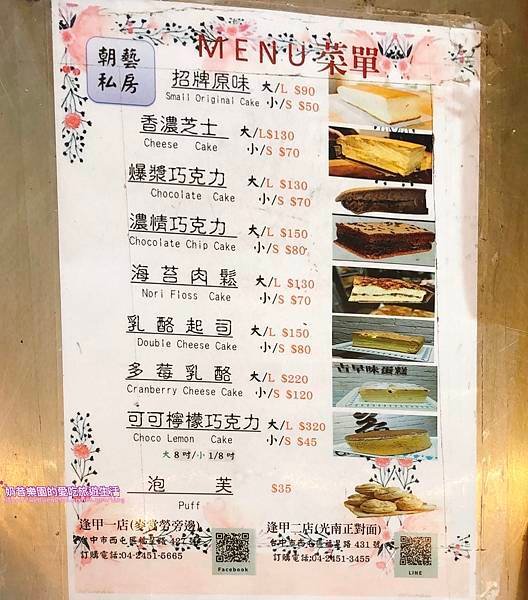 朝藝
私房
MENU菜單
招牌原味 大/L $90
Small Original Cake 小/S $50
香濃芝士 大/L$130
Cheese Cake 小/S $70
爆漿巧克力 大/L $130
Chocolate Cake 小/S $70
濃情巧克力 大/L $150
Chocolate Chip Cake 小/S $80
海苔肉鬆 大/L $130
Nori Floss Cake 小/S $70
乳酪起司 大/L $150
Double Cheese Cake 小/S $80
古早味蛋糕
多莓乳酪 大/L $220
Cranberry Cheese Cake 小/S $120
可可檸檬巧克力 大/L $320
Choco Lemon Cake 小/S $45
大 8 吋/小 1/8 吋
泡芙 $35
Puff
逢甲一店(麥當勞旁邊)
台中市西屯區福星路 427 號
訂購電話:04-2451-5665
Facebook
逢甲二店(光南正對面)
台中市西屯區福星路 431 號
訂購電話:04-2451-3455
LINE
奶昔樂園的愛吃旅遊生活